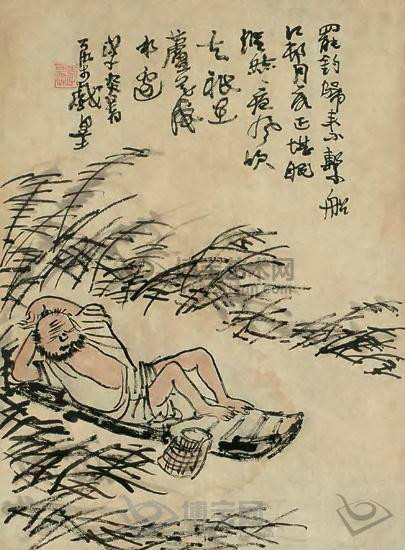 罷釣歸来不繫船
江邨月落正堪眠
縱然一夜風吹
去祇在
蘆花淺
水邊
戊子炎暑
戲墨
博宝艺术网
博宝网